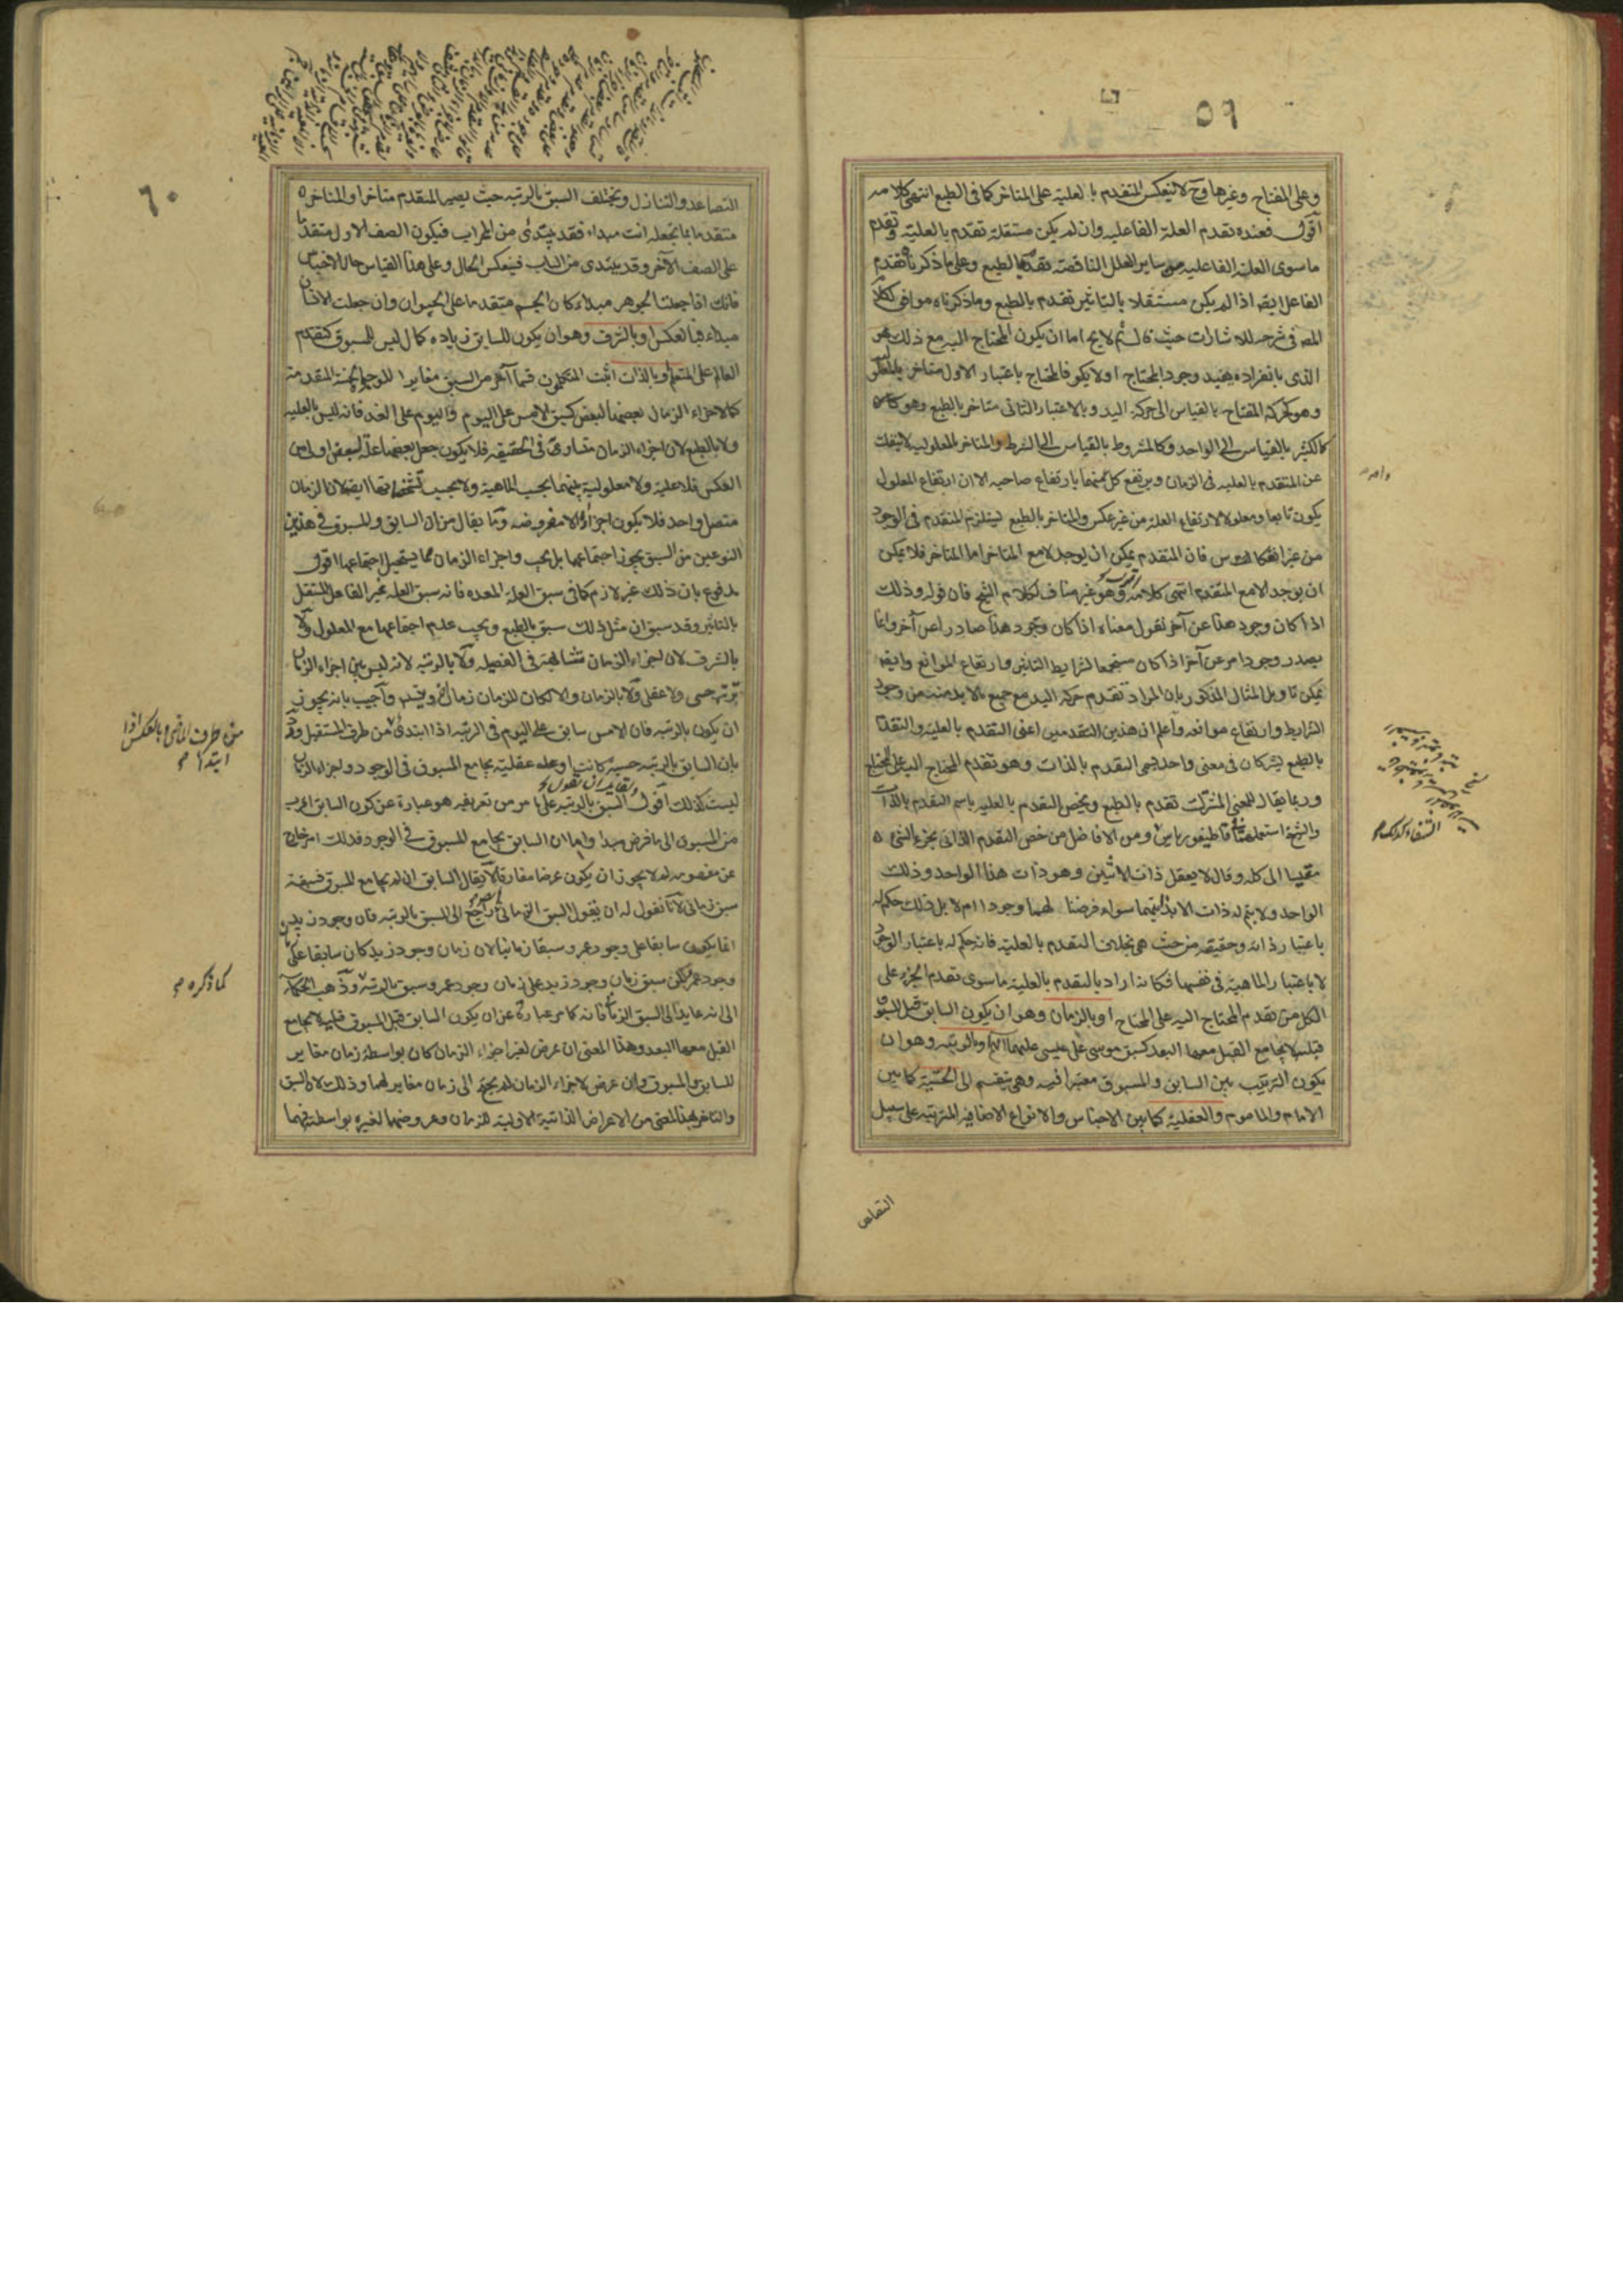 ٥٩
وعلى المفتاح وغيرها وح لا ينعكس المتقدم بالعلية على المتاخر كما في الطبع انتهى كلامه
اقول فعنده تقدم العلة الفاعلية وان لم يكن مستقلة تقدم بالعلية وتقدم
ما سوى العلة الفاعلية من ساير العلل الناقصة تقدم بالطبع وعلى ما ذكرناه تقدم
الفاعل ايضا اذا لم يكن مستقلا بالتاثير تقدم بالطبع وما ذكرناه موافق لكلام
المصه في شرحه للاشارات حيث قال ثم لا يخ اما ان يكون المحتاج اليه مع ذلك هو
الذي بانفراده يفيد وجود المحتاج اولا يكون فالمحتاج باعتبار الاول متاخر بالمعلولية
وهو كحركة المفتاح بالقياس الى حركة اليد وبالاعتبار الثاني متاخر بالطبع وهو
كالكثير بالقياس الى الواحد وكالمشروط بالقياس الى الشرط والمتاخر بالمعلولية لا ينفك
عن المتقدم بالعلية في الزمان ويرتفع كل منهما بارتفاع صاحبه الا ان ارتفاع المعلول
يكون تابعا ومعلولا لارتفاع العلة من غير عكس والمتاخر بالطبع يستلزم المتقدم في الوجود
من غير انعكاس فان المتقدم يمكن ان يوجد لا مع المتاخر اما المتاخر فلا يمكن
ان يوجد الا مع المتقدم انتهى كلامه وهو غير مناف لكلام الشيخ فان قوله وذلك
اذا كان وجود هذا عن آخر نقول معناه اذا كان وجود هذا صادرا عن آخر وانما
يصدر وجود امر عن آخر اذا كان مستجمعا لشرايط التاثير وارتفاع الموانع وايضا
يمكن تاويل المثال المذكور بان المراد تقدم حركة اليد مع جميع ما لا بد منه من وجود
الشرايط وارتفاع موانعه واعلم ان هذين التقدمين اعنى التقدم بالعلية والتقدم
بالطبع يشتركان في معنى واحد يسمى التقدم بالذات وهو تقدم المحتاج اليه على المحتاج
وربما يقال للمعنى المشترك تقدم بالطبع ويخص التقدم بالعلية باسم التقدم بالذات
والشيخ استعملهما في قاطيغورياس ومن الافاضل من خص التقدم الذاتي بجزء الشيء
مقيسا الى كله وقال لا يعقل ذات الاثنين وهو ذات هذا الواحد وذلك
الواحد ولا يتم له ذات الا بذاتيهما سواء فرضنا لهما وجودا ام لا بل ذلك حكم له
باعتبار ذاته وحقيقته من حيث هي بخلاف التقدم بالعلية فانه حكم له باعتبار الوجود
لا باعتبار الماهية في نفسها فكانه اراد بالتقدم بالعلية ما سوى تقدم الجزء على
الكل من تقدم المحتاج اليه على المحتاج او بالزمان وهو ان يكون السابق قبل المسبوق
قبلية لا يجامع القبل معها البعد كسبق موسى على عيسى عليهما السلام او بالرتبة وهو ان
يكون الترتيب بين السابق والمسبوق معتبرا فيه وهي تنقسم الى الحسية كما بين
الامام والماموم والعقلية كما بين الاجناس والانواع الاضافية المترتبة على سبيل
التصاعد
٦٠
التصاعد والتنازل ويختلف السبق بالرتبة حيث يصير المتقدم متاخرا والمتاخر
متقدما بما تجعله انت مبداء فقد يبتدئ من المحراب فيكون الصف الاول متقدما
على الصف الآخر وقد يبتدى من الباب فينعكس الحال وعلى هذا القياس حال الاجناس
فانك اذا جعلت الجوهر مبداء كان الجسم متقدما على الحيوان وان جعلت الانسان
مبداء فبالعكس او بالشرف وهو ان يكون للسابق زياده كمال ليس للمسبوق كتقدم
العالم على المتعلم او بالذات اثبت المتكلمون قسما آخر من السبق مغايرا للوجوه الخمسة المقدمة
كما لاجزاء الزمان بعضها لبعض كسبق الامس على اليوم واليوم على الغد فانه ليس بالعلية
ولا بالطبع لان اجزاء الزمان متساوية في الحقيقة فلا يكون جعل بعضها علة لبعض اولى من
العكس فلا علية ولا معلولية بينهما بحسب الماهية ولا بحسب تشخصاتهما ايضا لان الزمان
متصل واحد فلا يكون اجزاؤه الا مفروضة وما يقال من ان السابق والمسبوق في هذين
النوعين من السبق يجوز اجتماعهما بل يجب واجزاء الزمان مما يستحيل اجتماعها اقول
مدفوع بان ذلك غير لازم كما في سبق العلة المعده فانه سبق العلة غير الفاعل المستقل
بالتاثير وقد سبق ان مثل ذلك سبق بالطبع ويجب عدم اجتماعها مع المعلول ولا
بالشرف لان اجزاء الزمان متشابهة في الفضيلة ولا بالرتبة لانه ليس بين اجزاء الزمان
ترتب حسي ولا عقلي ولا بالزمان والا لكان للزمان زمان آخر ويتسلسل واجيب بانه يجوز
ان يكون بالرتبة فان الامس سابق على اليوم في الرتبة اذا ابتدئ من طرف المستقبل ورد
بان السابق بالرتبة حسية كانت او عقلية يجامع المسبوق في الوجود واجزاء الزمان
ولقايل ان يقول
ليست كذلك اقول السبق بالرتبة على ما مر من تعريفه هو عبارة عن كون السابق اقرب
من المسبوق الى ما فرض مبدا واما ان السابق يجامع المسبوق في الوجود فذلك امر خارج
عن مفهومه لم لا يجوز ان يكون عرضا مفارقا لا يقال السابق ان لم يجامع المسبوق فسبقه
سبق زماني لانا نقول له ان يقول السبق الزماني راجع الى السبق بالرتبة فان وجود زيد
انما يكون سابقا على وجود عمرو سبقا زمانيا لان زمان وجود زيد كان سابقا على زمان
وجود عمرو لكن سبق زمان وجود زيد على زمان وجود عمرو سبق بالرتبة وذهب الحكماء
الى انه عايد الى السبق الزماني فانه كما مر عبارة عن ان يكون السابق قبل المسبوق قبلية لا يجامع
القبل معها البعد وهذا المعنى ان عرض لغير اجزاء الزمان كان بواسطة زمان مغاير
للسابق والمسبوق وان عرض لاجزاء الزمان لم يحتج الى زمان مغاير لهما وذلك لان السبق
والتاخر بهذا المعنى من الاعراض الذاتية الاولية للزمان وعروضها لغيره بواسطته فهما
من طرف الماضي وبالعكس اذا
ابتدا
كما ذكره